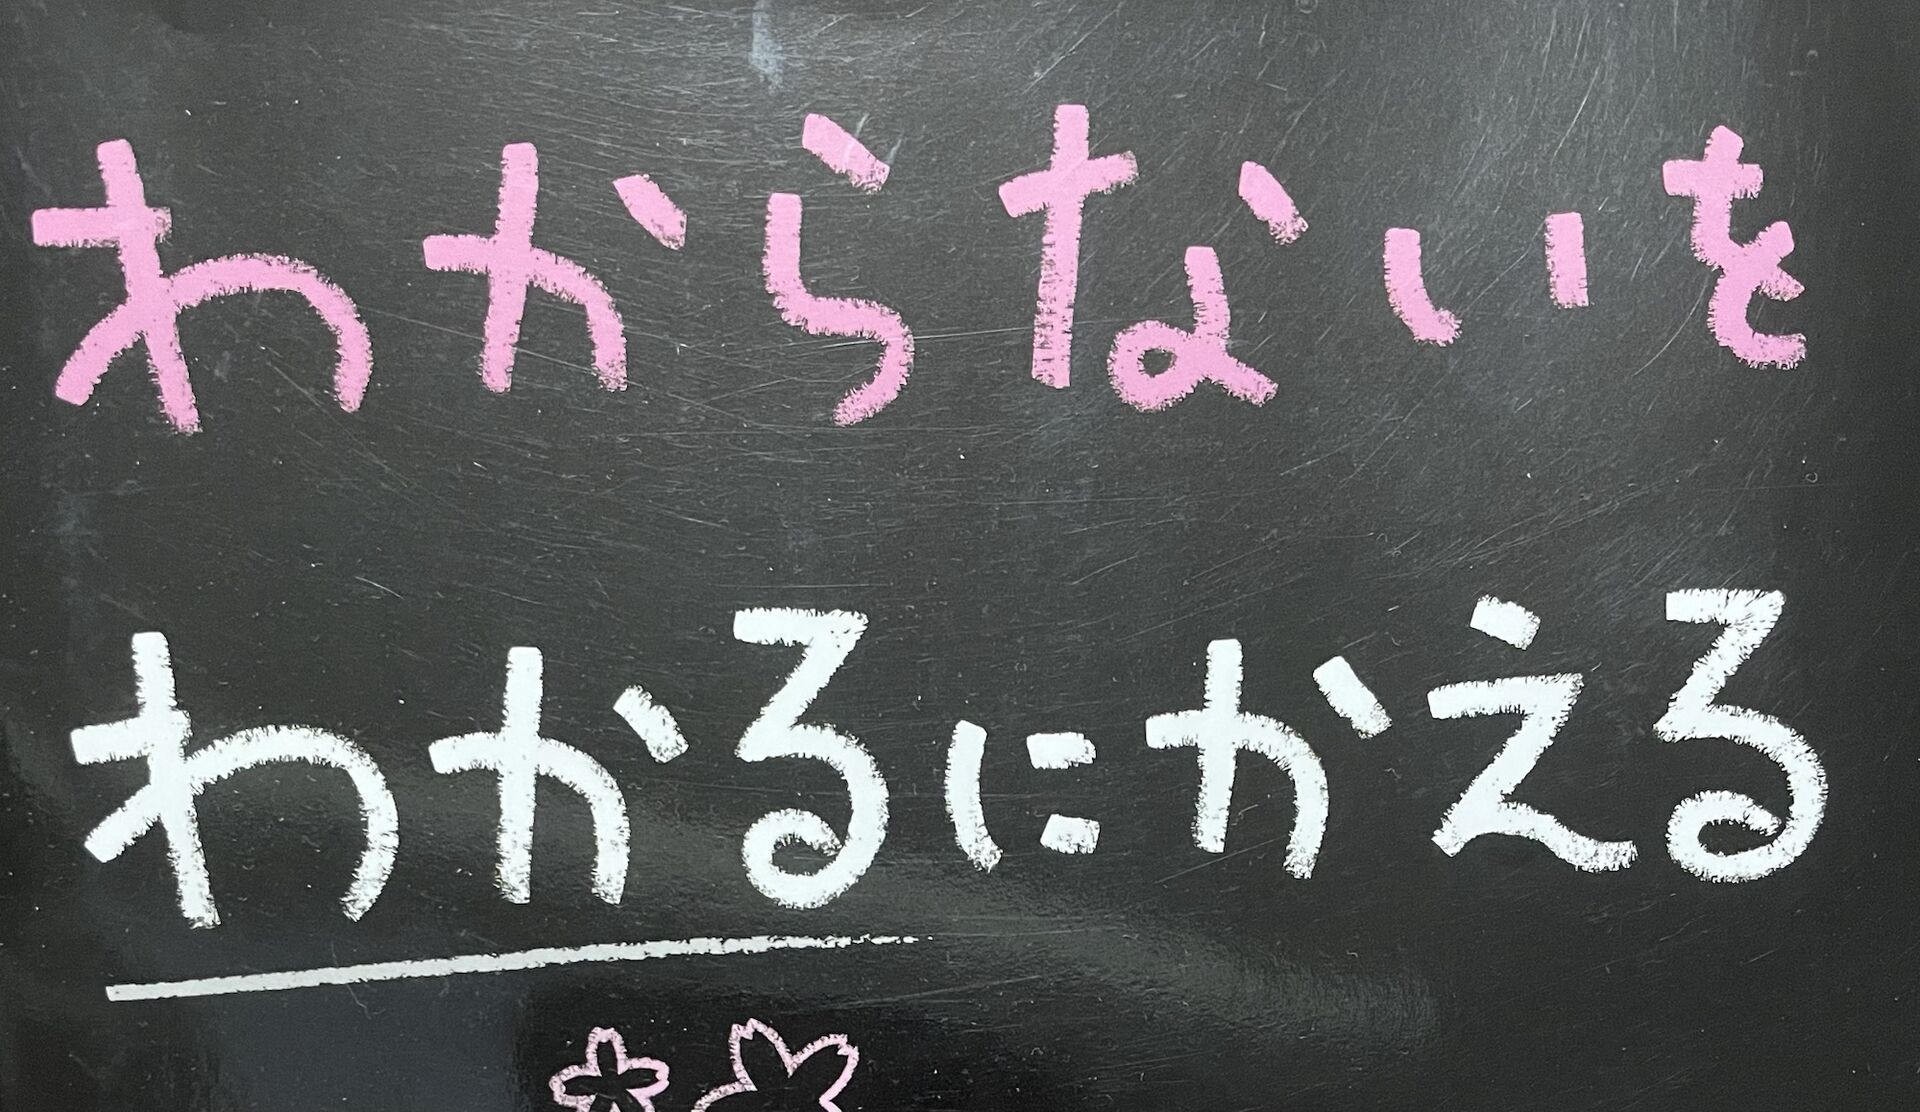 わからないを
わかるにかえる